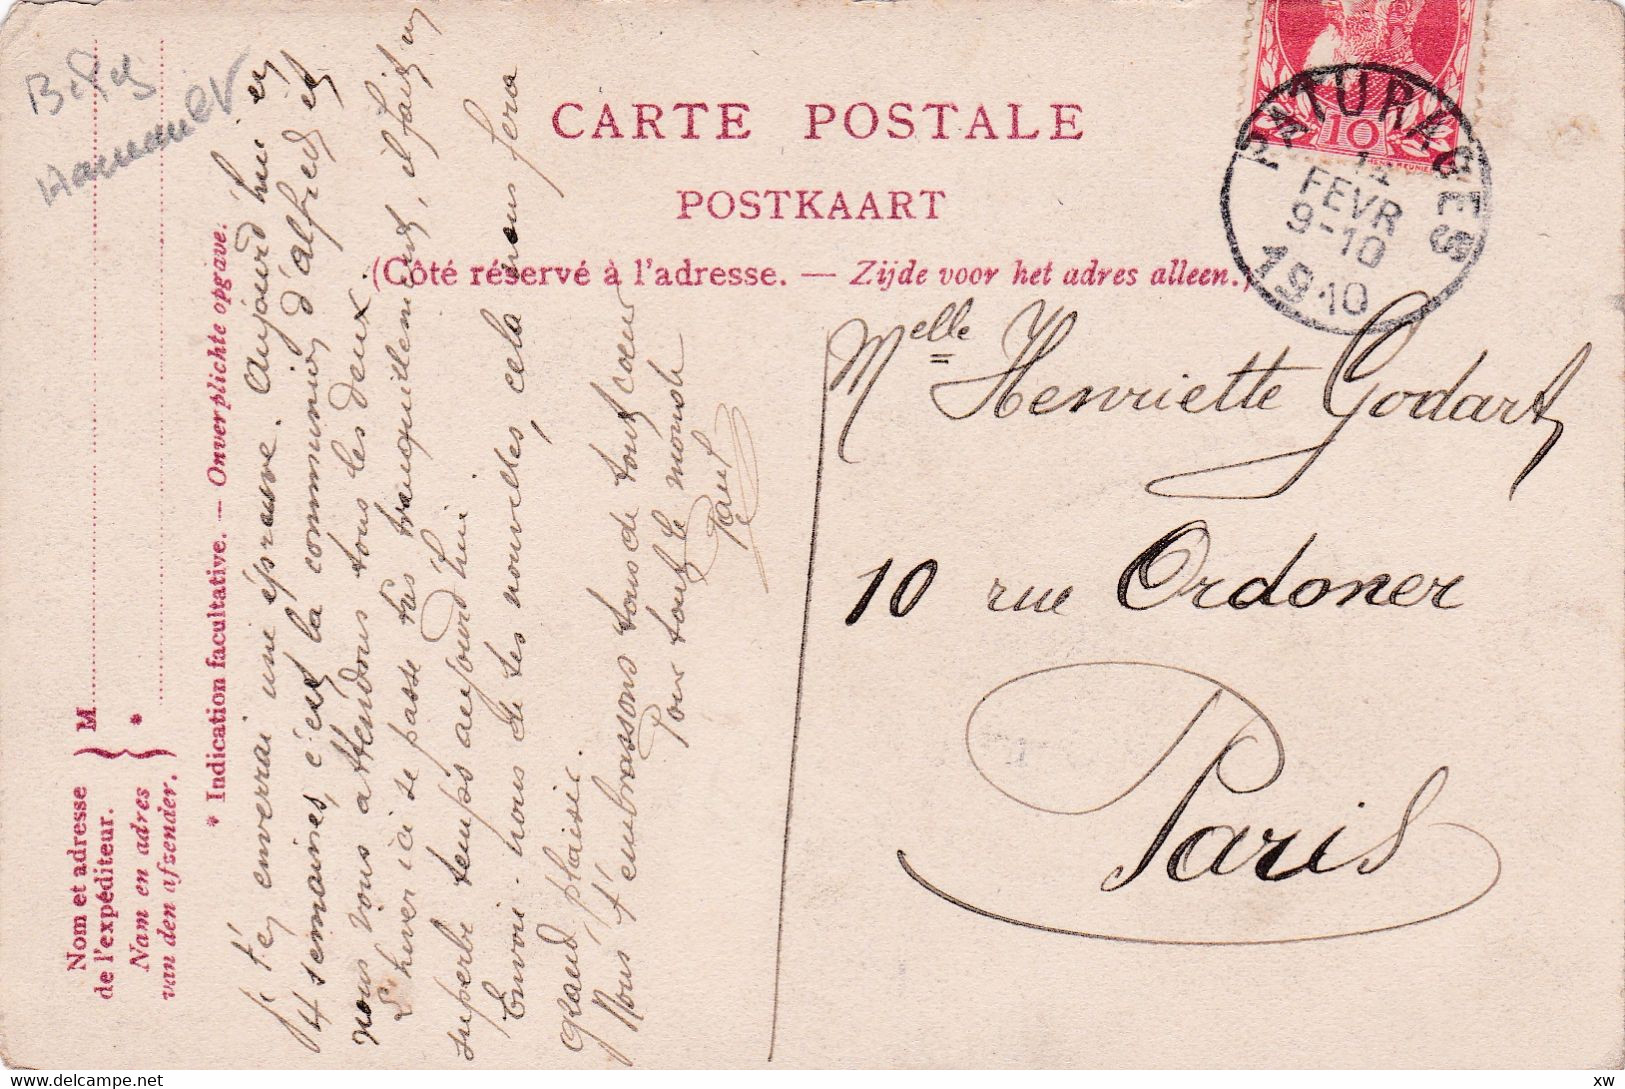 CARTE POSTALE
POSTKAART
(Côté réservé à l'adresse. — Zijde voor het adres alleen.)
10
PATURAGES
14
FEVR
9-10
1910
Melle Henriette Godart
10 rue Ordoner
Paris
Nom et adresse
de l'expéditeur.
Nam en adres
van den afzender.
M
*
* Indication facultative. — Onverplichte opgave.
j't'enverrai une épreuve. Aujourd'hui en
4 semaines, c'est la communion d'alfred et
nous vous attendons tous les deux.
L'hiver ici se passe très tranquillement, il fait un
superbe temps aujourd'hui
Envoi-nous de tes nouvelles, cela nous fera
grand plaisir.
Nous t'embrassons tous de tout cœur
Pour tout le monde
Paul
xw